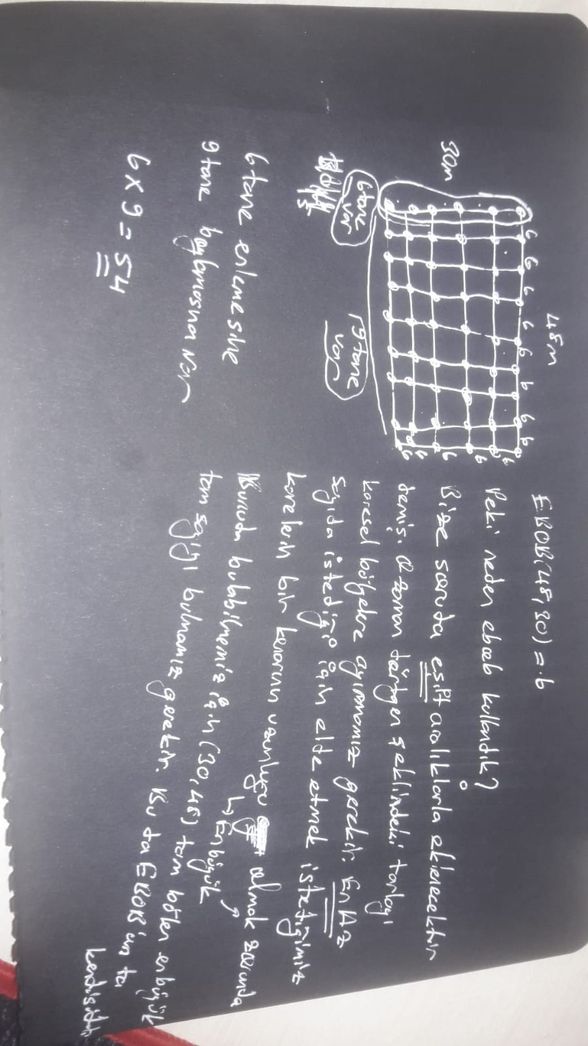 EBOB(48,30)=6
Peki neden ebob kullandık?
Bize soruda eşit aralıklarla ekilecektir
demiş. O zaman dörtgen şeklindeki tarlayı
karesel bölgelere ayırmamız gerekir. En Az
sayıda istediği için elde etmek istediğimiz
karelerin bir kenarının uzunluğu olmak zorunda
↳ En büyük
Bunuda bulabilmemiz için (30,48) tam bölen en büyük
tam sayıyı bulmamız gerekir. Bu da EBOB'un ta
kendisidir
48m
6 6 6 6 6 6 6 6
30m
6
6
6
6
6
6 tane
var
9 tane
var
6 tane enlemesine
9 tane boylamasına var
6 x 9 = 54